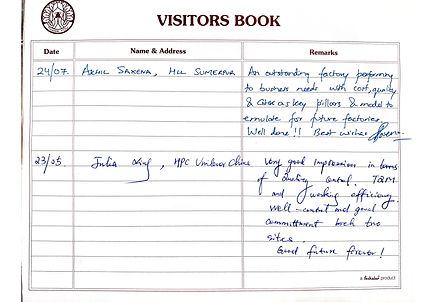 VISITORS BOOK
Date Name & Address Remarks
24/07 AKHIL SAXENA, HLL SUMERPUR An outstanding factory performing
to business needs with cost, quality
& as key pillors & model to
emulate for future factories.
Well done!! Best wishes
23/05 Julia, HPC Unilever China Very good impression in terms
of Quality control, TQM
and working efficiency.
Well- and good
committment both two
sites.
Good future forever!
a product